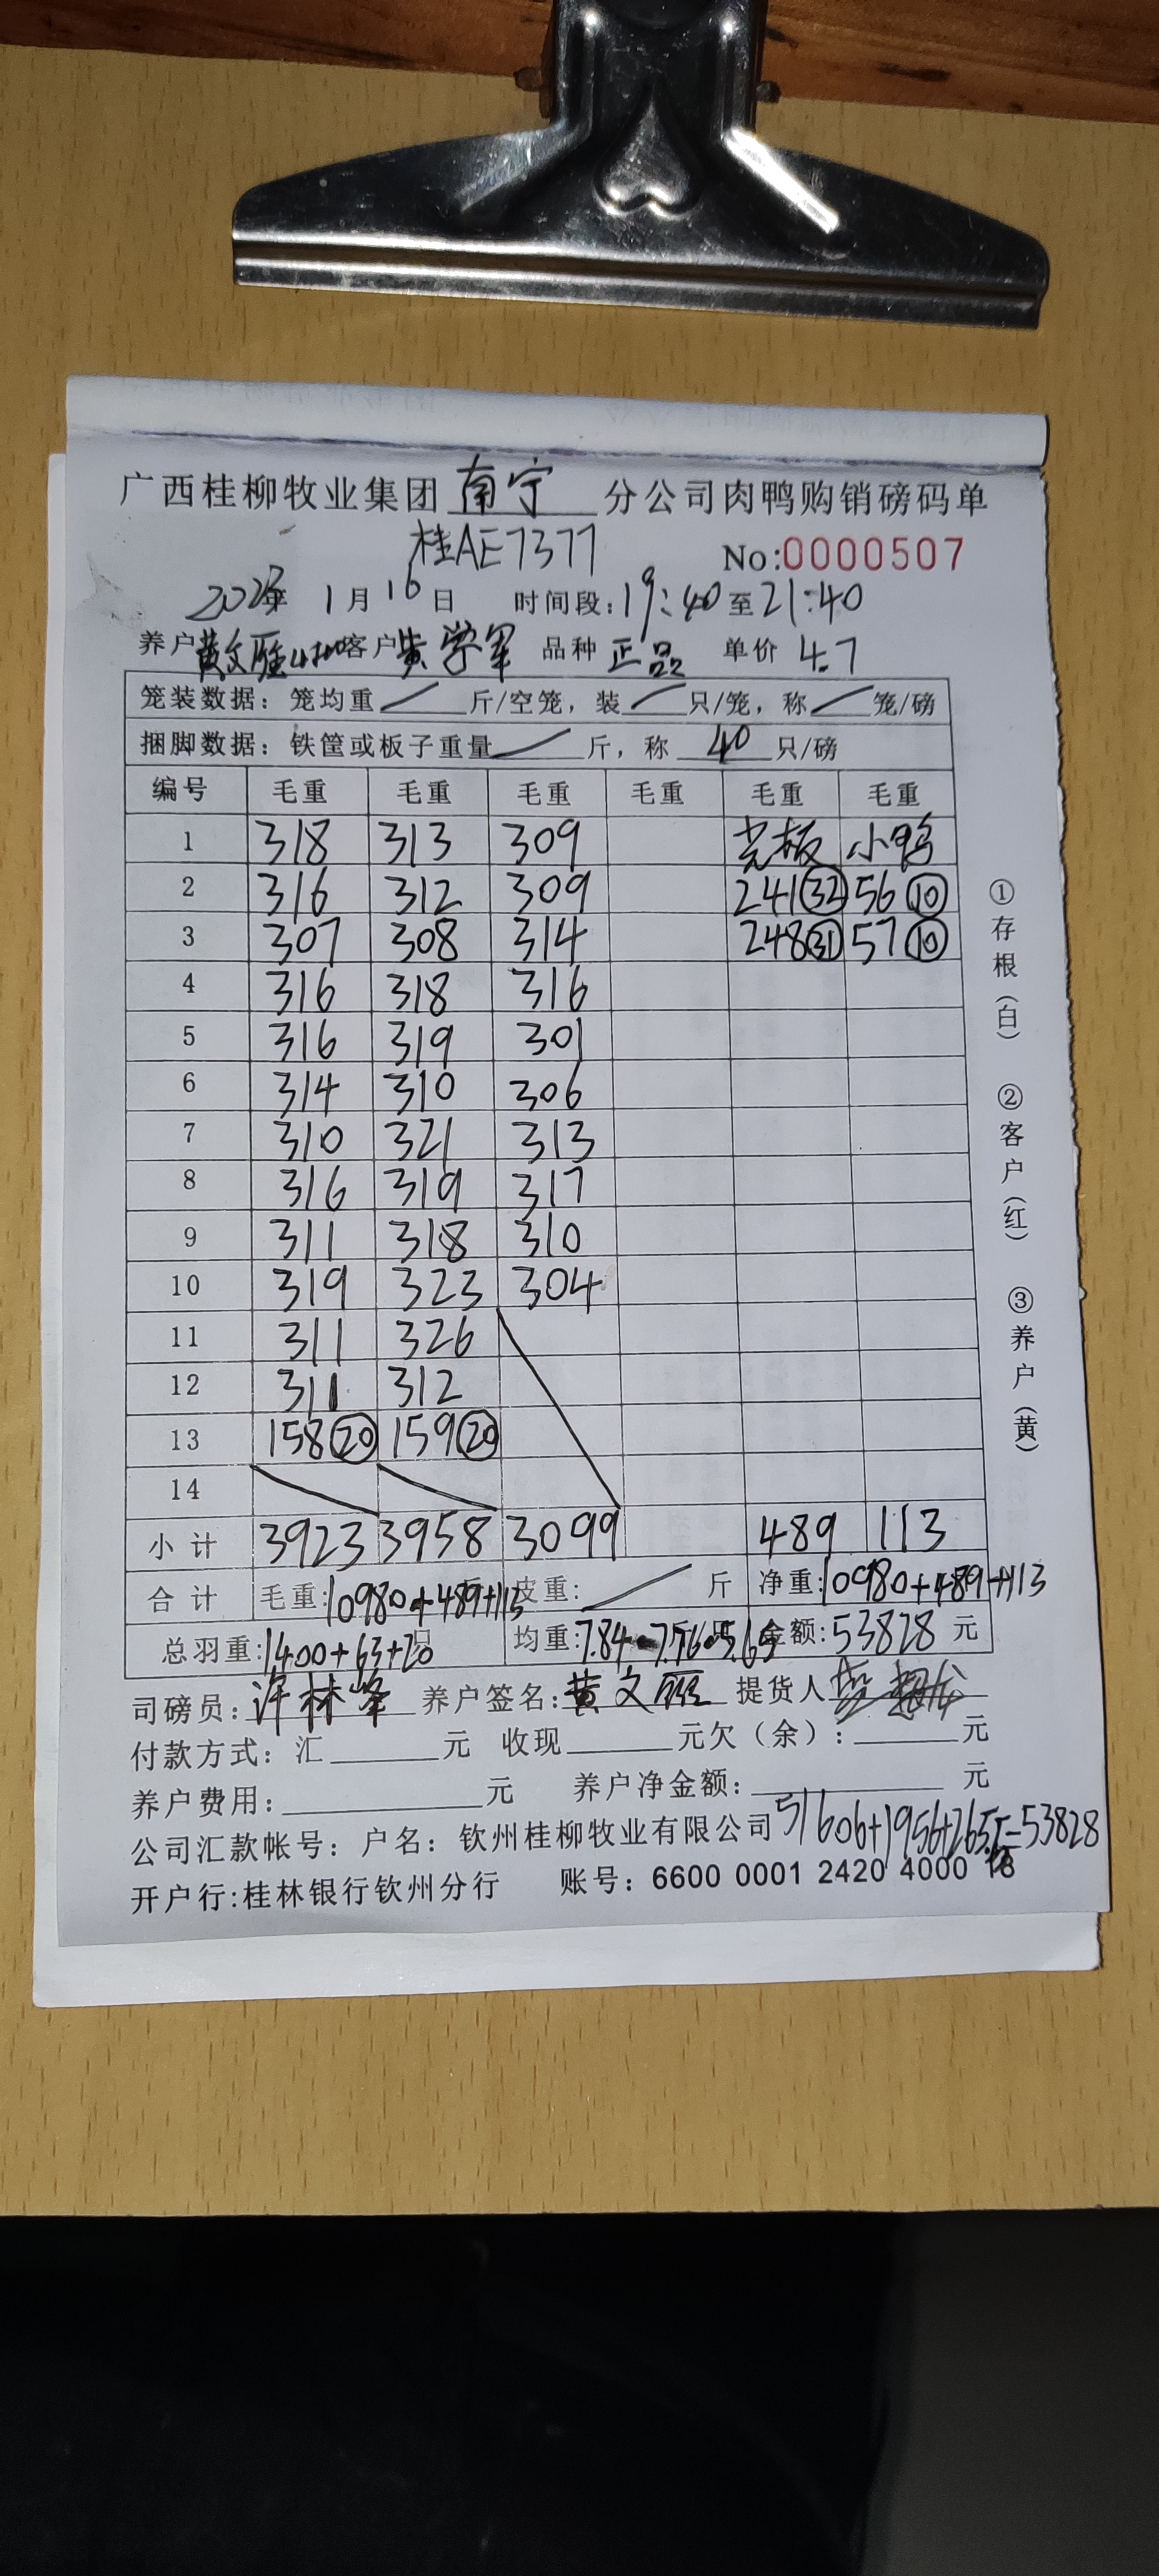 广西桂柳牧业集团南宁分公司肉鸭购销磅码单
桂AE7377
No:0000507
2023年 1月16日 时间段:19:40至21:40
养户黄文雁 客户黄学军 品种 正品 单价 4.7
笼装数据：笼均重 / 斤/空笼，装 / 只/笼，称 / 笼/磅
捆脚数据：铁筐或板子重量 / 斤，称 40 只/磅
编号 毛重 毛重 毛重 毛重 毛重 毛重
1 318 313 309 光板 小鸭
2 316 312 309 241㉜ 56⑩
3 307 308 314 248㉛ 57⑩
4 316 318 316
5 316 319 301
6 314 310 306
7 310 321 313
8 316 319 317
9 311 318 310
10 319 323 304
11 311 326
12 311 312
13 158⑳ 159⑳
14
小计 3923 3958 3099 489 113
合计 毛重:10980+489+113 皮重: / 斤 净重:10980+489+113
总羽重:1400+63+20只 均重:7.84 7.76 5.65 金额:53828 元
司磅员:许林峰 养户签名:黄文雁 提货人
付款方式：汇 元 收现 元欠（余）: 元
养户费用: 元 养户净金额: 元
公司汇款帐号：户名：钦州桂柳牧业有限公司 51606+1956+265.5=53828
开户行:桂林银行钦州分行 账号：6600 0001 2420 4000 18
①存根（白） ②客户（红） ③养户（黄）